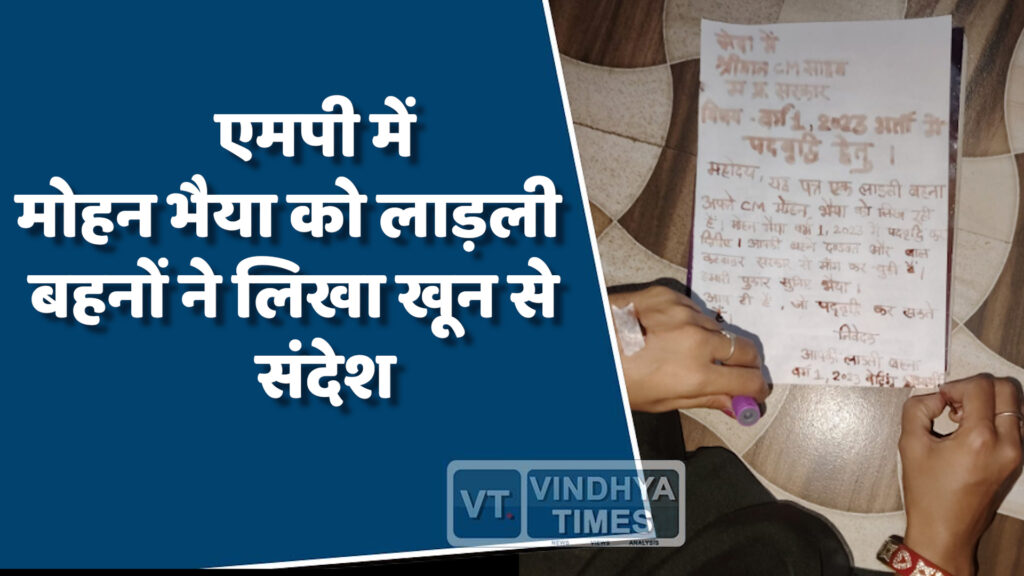 एमपी में
मोहन भैया को लाड़ली
बहनों ने लिखा खून से
संदेश
सेवा में
श्रीमान CM साहब
म.प्र. सरकार
विषय - वर्ग 1, 2023 भर्ती में
पदवृद्धि हेतु ।
महोदय, यह पत्र एक लाडली बहना
अपने CM मोहन भैया को लिख रही
है। मोहन भैया वर्ग 1, 2023 में पदवृद्धि कर
दीजिए। आपकी बहन दण्डवत और बाल
करवाकर सरकार से मांग कर चुकी है।
हमारी पुकार सुनिए भैया।
आप ही है, जो पदवृद्धि कर सकते
है।
निवेदक
आपकी लाडली बहना
वर्ग 1, 2023 वेटिंग
VT.
VINDHYA
TIMES
NEWS VIEWS ANALYSIS